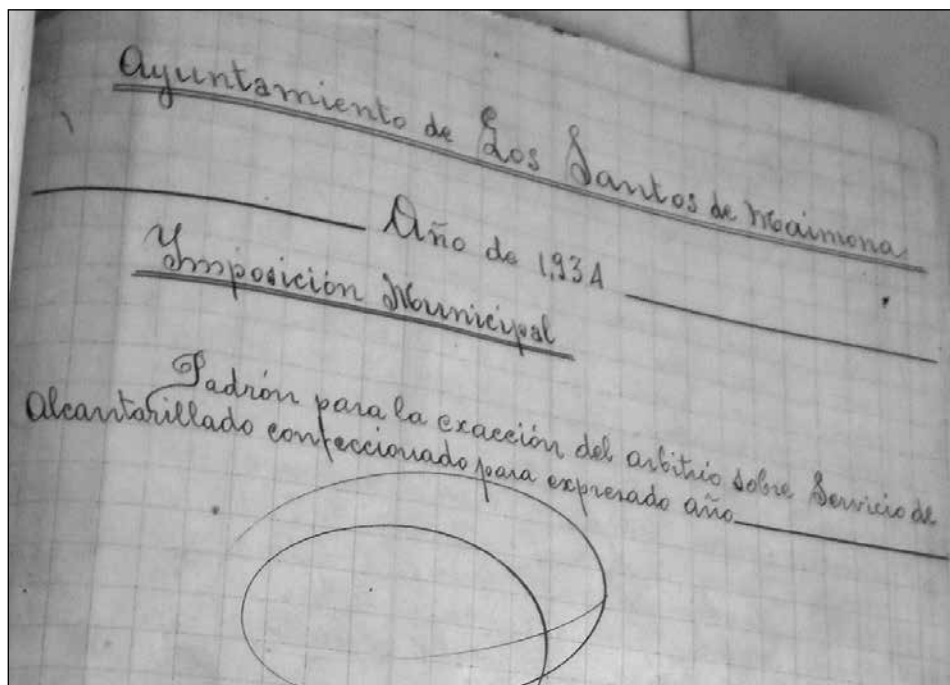 Ayuntamiento de Los Santos de Maimona
Año de 1,934
Imposición Municipal
Padrón para la exacción del arbitrio sobre Servicio de
Alcantarillado confeccionado para expresado año